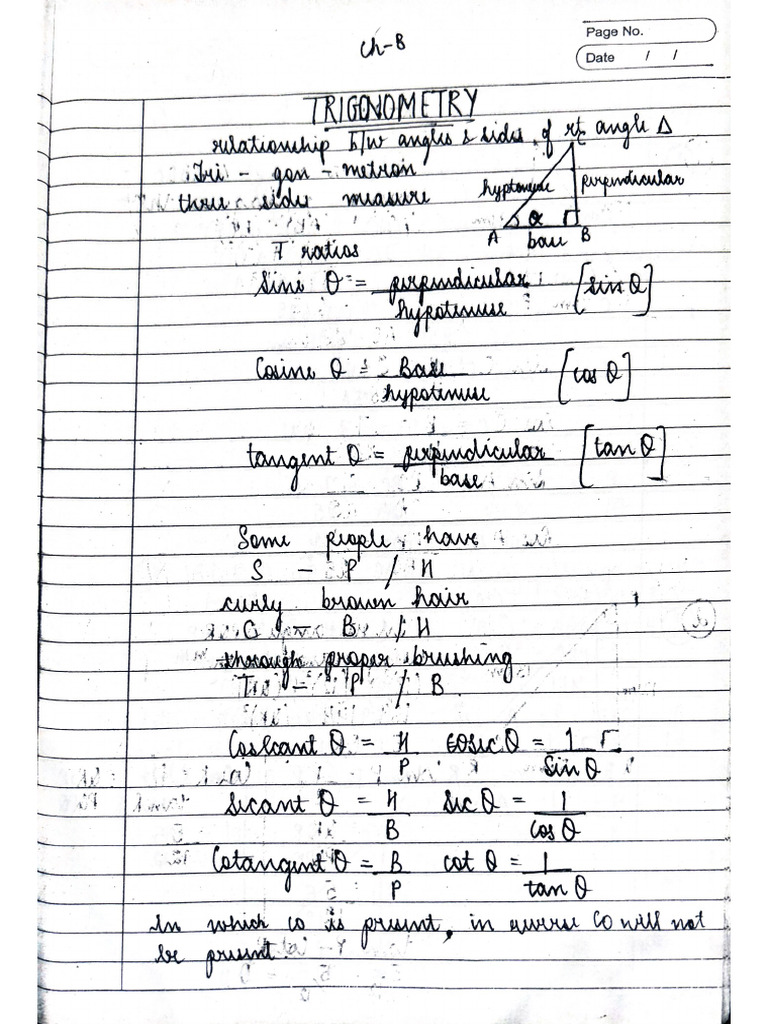 Page No.
Date / /
Ch-8
TRIGONOMETRY
relationship b/w angles & sides of rt angle Δ
Tri - gon - metron
three sides measure
hyptenuse perpendicular
α
A base B
T ratios
Sine θ = perpendicular / hypotenuse [sin θ]
Cosine θ = Base / hypotenuse [cos θ]
tangent θ = perpendicular / base [tan θ]
Some people have
S - P / H
curly brown hair
C - B / H
through proper brushing
T - P / B
Cosecant θ = H / P cosec θ = 1 / Sin θ
Secant θ = H / B Sec θ = 1 / cos θ
Cotangent θ = B / P cot θ = 1 / tan θ
In which co is present, in reverse CO will not
be present.